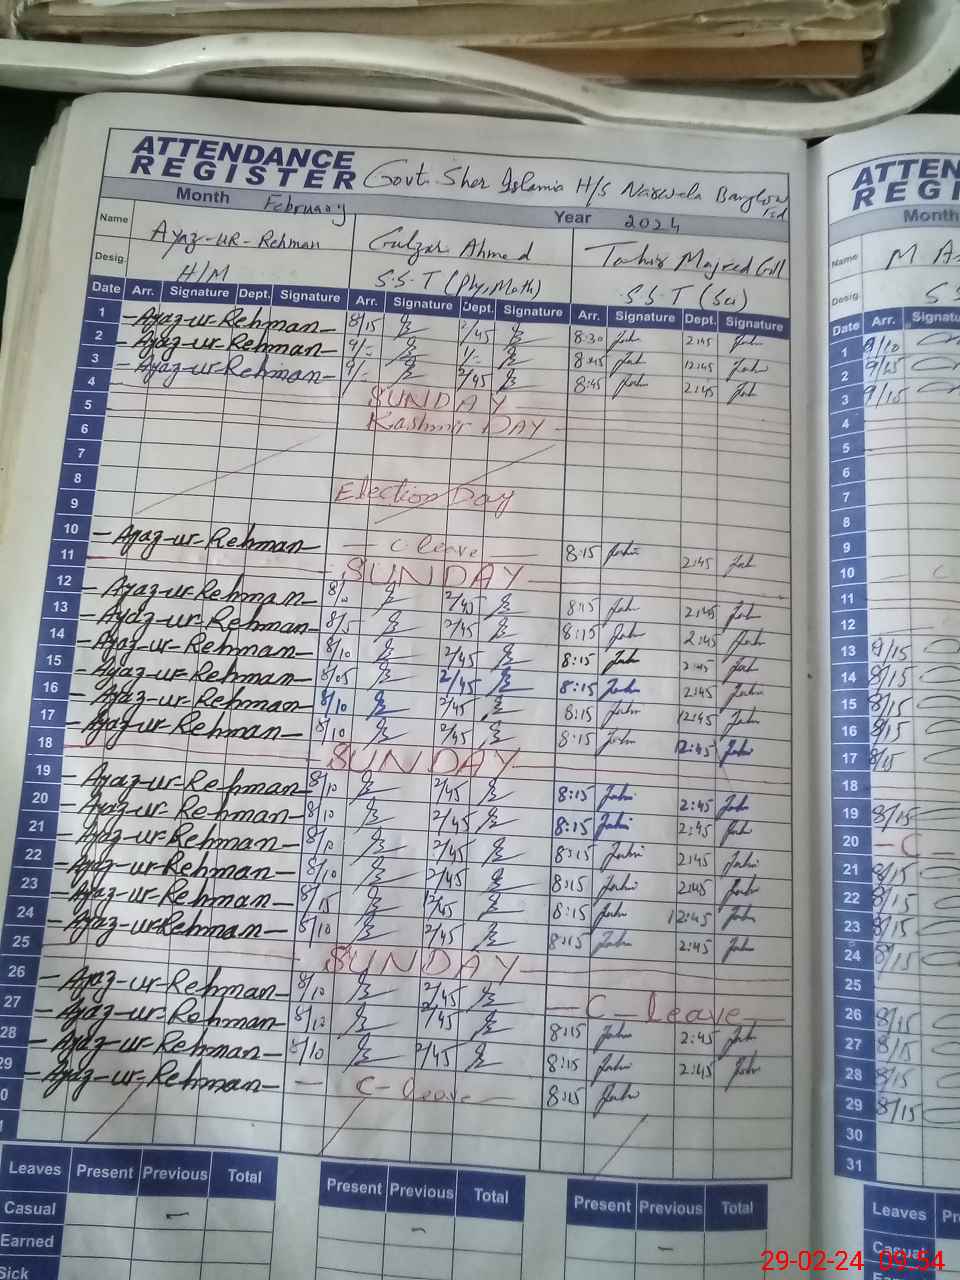 ATTENDANCE
REGISTER
Govt. Sher Islamia H/S
Month February Year 2024
Name Ayaz-UR-Rehman Gulzar Ahmed Tahir Majeed Gill
Desig. H/M S.S.T (Phy, Math) S.S.T (Sci)
Date Arr. Signature Dept. Signature Arr. Signature Dept. Signature Arr. Signature Dept. Signature
1 -Ayaz-ur-Rehman- 8/15 2/45 8:30 2:45
2 -Ayaz-ur-Rehman- 9/- 1/- 8:45 12:45
3 -Ayaz-ur-Rehman- 9/- 2/45 8:45 2:45
4 SUNDAY
5 Kashmir DAY
6
7
8 Election Day
9
10 -Ayaz-ur-Rehman- - C leave - 8:15 2:45
11 SUNDAY
12 -Ayaz-ur-Rehman- 2/45 8:15 2:45
13 -Ayaz-ur-Rehman- 2/45 8:15 2:45
14 -Ayaz-ur-Rehman- 8/10 2/45 8:15 2:45
15 -Ayaz-ur-Rehman- 8/05 2/45 8:15 2:45
16 -Ayaz-ur-Rehman- 8/10 2/45 8:15 12:45
17 -Ayaz-ur-Rehman- 8/10 2/45 8:15 12:45
18 SUNDAY
19 -Ayaz-ur-Rehman- 8/10 2/45 8:15 2:45
20 -Ayaz-ur-Rehman- 8/10 2/45 8:15 2:45
21 -Ayaz-ur-Rehman- 2/45 8:15 2:45
22 -Ayaz-ur-Rehman- 8/10 2/45 8:15 2:45
23 -Ayaz-ur-Rehman- 8/15 12/45 8:15 12:45
24 -Ayaz-ur-Rehman- 8/10 2/45 8:15 2:45
25 SUNDAY
26 -Ayaz-ur-Rehman- 8/10 2/45 - C - leave -
27 -Ayaz-ur-Rehman- 8/10 2/45 8:15 2:45
28 -Ayaz-ur-Rehman- 8/10 2/45 8:15 2:45
29 -Ayaz-ur-Rehman- - C - leave - 8:15
Leaves Present Previous Total Present Previous Total Present Previous Total
Casual - - -
Earned
Sick
ATTEN
REGI
Month
Name
Desig.
Date Arr. Signatu
1 9/10
2 9/15
3 9/15
4
5
6
7
8
9
10 - C
11
12
13 9/15
14 8/15
15 8/15
16 8/15
17 8/15
18
19 8/15
20 - C -
21 8/15
22 8/15
23 8/15
24 8/15
25
26 8/15
27 8/15
28 8/15
29 8/15
30
31
Leaves Pr
Casual
29-02-24 09:54